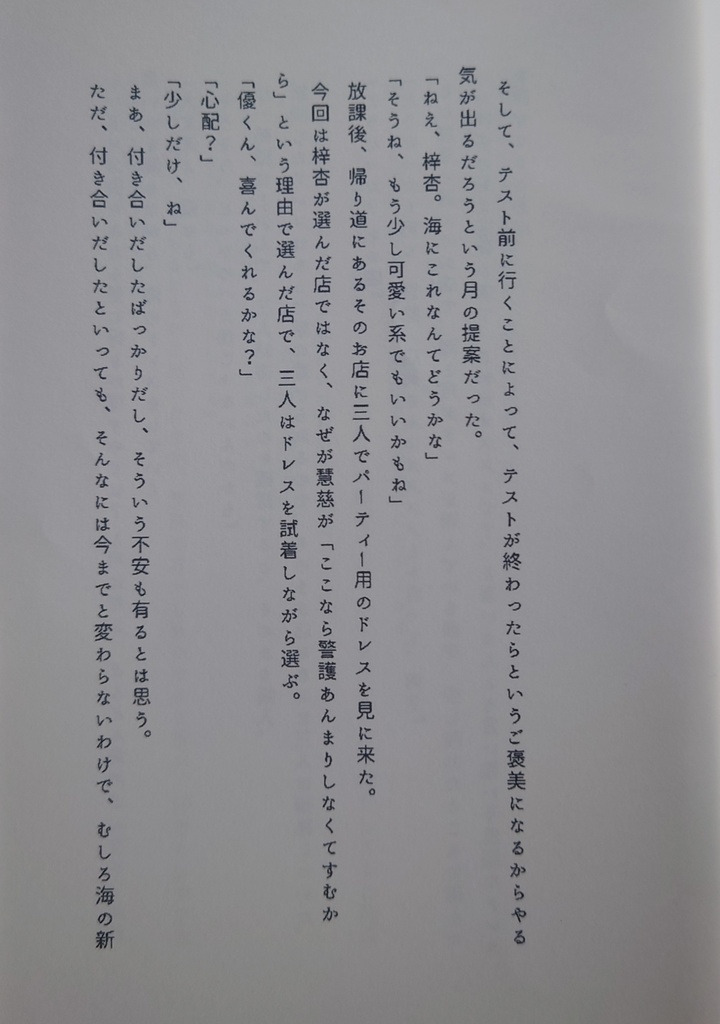 そして、テスト前に行くことによって、テストが終わったらというご褒美になるからやる
気が出るだろうという月の提案だった。
「ねえ、梓杏。海にこれなんてどうかな」
「そうね、もう少し可愛い系でもいいかもね」
放課後、帰り道にあるそのお店に三人でパーティー用のドレスを見に来た。
今回は梓杏が選んだ店ではなく、なぜが慧慈が「ここなら警護あんまりしなくてすむか
ら」という理由で選んだ店で、三人はドレスを試着しながら選ぶ。
「優くん、喜んでくれるかな？」
「心配？」
「少しだけ、ね」
まあ、付き合いだしたばっかりだし、そういう不安も有るとは思う。
ただ、付き合いだしたといっても、そんなには今までと変わらないわけで、むしろ海の新